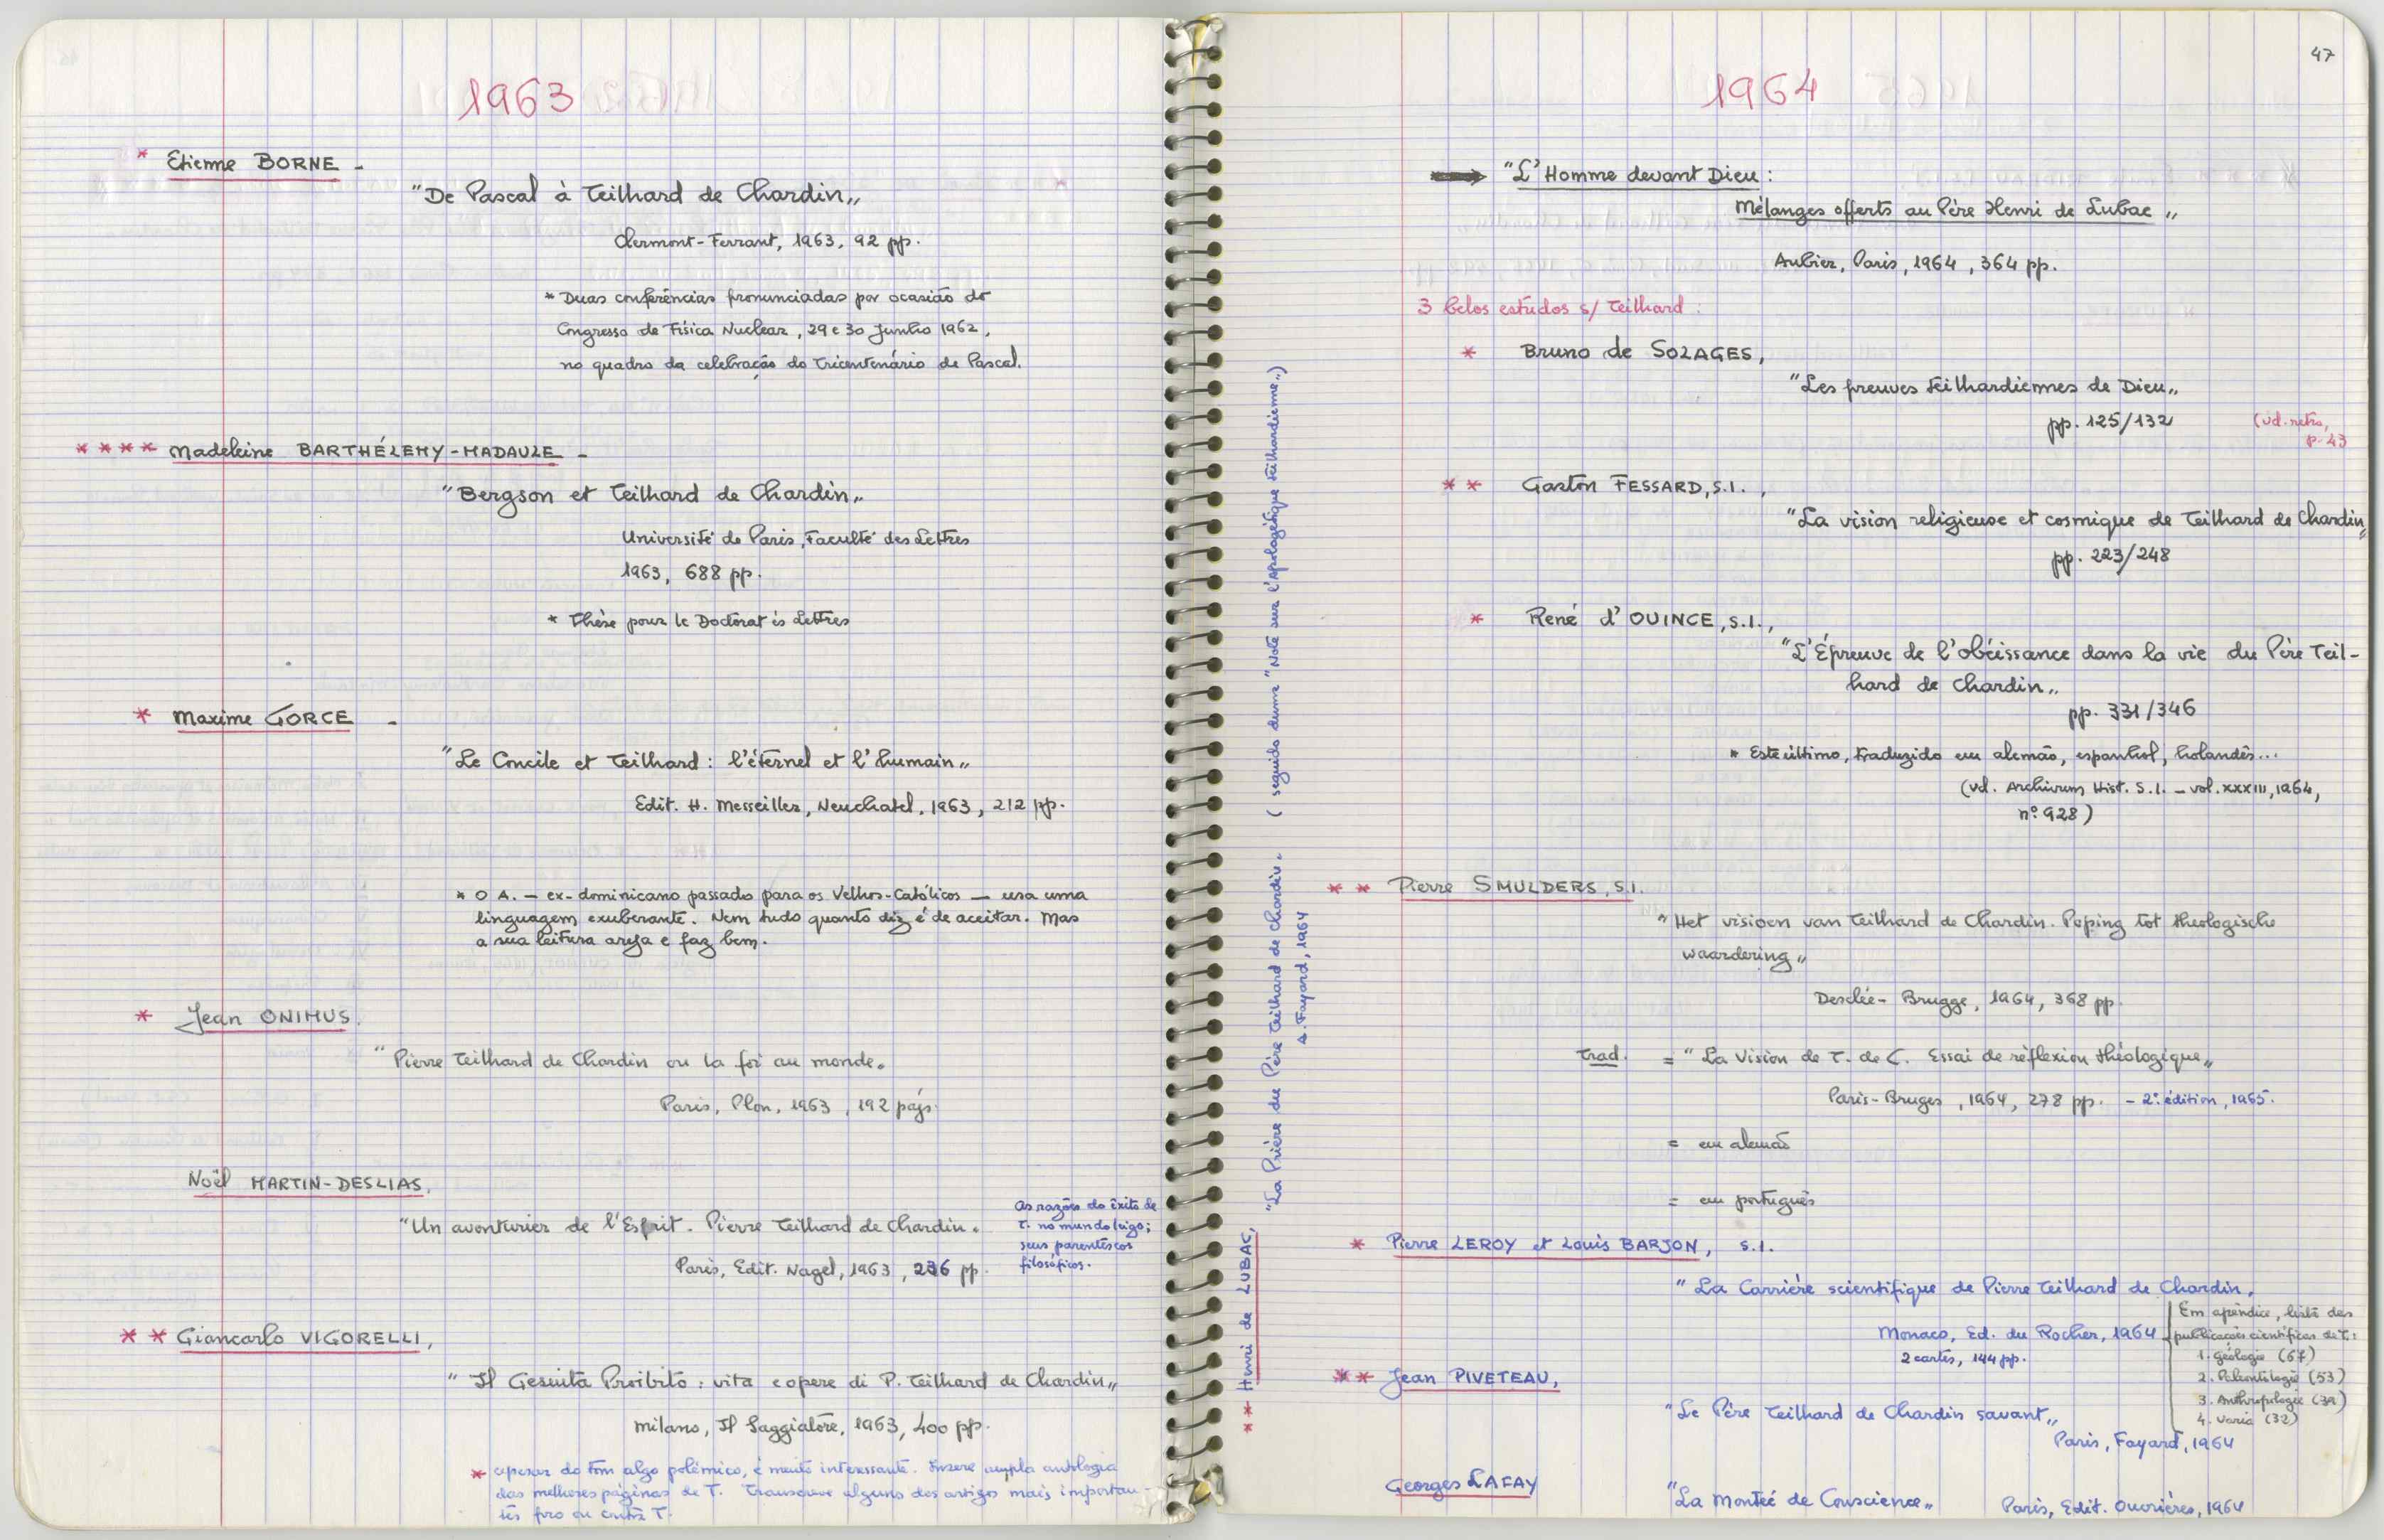 1963
* Etienne BORNE -
"De Pascal à Teilhard de Chardin„
Clermont-Ferrant, 1963, 92 pp.
* Duas conferências pronunciadas por ocasião do
Congresso de Física Nuclear, 29 e 30 Junho 1962,
no quadro da celebração do Tricentenário de Pascal.
* * * * Madeleine BARTHÉLEMY-MADAULE -
"Bergson et Teilhard de Chardin„
Université de Paris, Faculté des Lettres
1963, 688 pp.
* Thèse pour le Doctorat ès Lettres
* Maxime GORCE -
"Le Concile et Teilhard: l'éternel et l'humain„
Edit. H. Messeiller, Neuchatel, 1963, 212 pp.
* O A. - ex-dominicano passado para os Velhos-Católicos - usa uma
linguagem exuberante. Nem tudo quanto diz é de aceitar. Mas
a sua leitura areja e faz bem.
* Jean ONIMUS.
"Pierre Teilhard de Chardin ou la foi au monde„
Paris, Plon, 1963, 192 págs.
Noël MARTIN-DESLIAS,
"Un aventurier de l'Esprit. Pierre Teilhard de Chardin„
Paris, Edit. Nagel, 1963, 236 pp.
As razões do êxito de
T. no mundo leigo;
seus parentescos
filosóficos.
* * Giancarlo VIGORELLI,
"Il Gesuita Proibito: vita e opere di P. Teilhard de Chardin„
Milano, Il Saggiatore, 1963, 400 pp.
* apesar do tom algo polémico, é muito interessante. Insere ampla antologia
das melhores páginas de T. Transcreve alguns dos artigos mais importan-
tes pro ou contra T.
47
1964
"L'Homme devant Dieu:
Mélanges offerts au Père Henri de Lubac„
Aubier, Paris, 1964, 364 pp.
3 belos estudos s/ Teilhard:
* Bruno de SOLAGES,
"Les preuves teilhardiennes de Dieu„
pp. 125/132
(vd. retro,
p. 43
* * Gaston FESSARD, S.I.,
"La vision religieuse et cosmique de Teilhard de Chardin„
pp. 223/248
* René d'OUINCE, S.I.,
"L'Épreuve de l'obéissance dans la vie du Père Teil-
hard de Chardin„
pp. 331/346
* Este último, traduzido em alemão, espanhol, holandês...
(vd. Archivum Hist. S.I. - vol. XXXIII, 1964,
nº 928)
* * Pierre SMULDERS, S.I.
"Het visioen van Teilhard de Chardin. Poping tot theologische
waardering„
Desclée - Brugge, 1964, 368 pp.
trad. = "La Vision de T. de C. Essai de réflexion théologique„
Paris-Bruges, 1964, 278 pp. - 2e édition, 1965.
= em alemão
= em português
* Pierre LEROY et Louis BARJON, S.I.
"La Carrière scientifique de Pierre Teilhard de Chardin,
Monaco, Ed. du Rocher, 1964
2 cartes, 144 pp.
Em apêndice, lista das
publicações científicas de T.:
1. Géologie (67)
2. Paléontologie (53)
3. Anthropologie (39)
4. Varia (32)
* * Jean PIVETEAU,
"Le Père Teilhard de Chardin savant„
Paris, Fayard, 1964
Georges LAFAY
"La Montée de Conscience„ Paris, Edit. Ouvrières, 1964
* * Henri de LUBAC, "La Prière du Père Teilhard de Chardin„ (seguido duma "Note sur l'Apologétique teilhardienne„)
A. Fayard, 1964